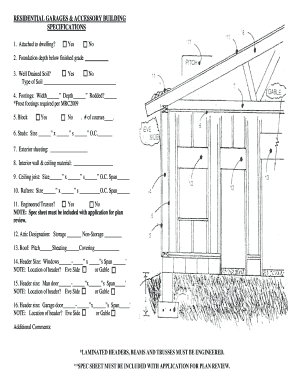 RESIDENTIAL GARAGES & ACCESSORY BUILDING
SPECIFICATIONS
1. Attached to dwelling? Yes No
2. Foundation depth below finished grade
3. Well Drained Soil? Yes No
Type of Soil
4. Footings: Width Depth Rodded?
*Frost footings required per MRC2009
5. Block Yes No . # of courses
6. Studs: Size " x " O.C.
7. Exterior sheeting:
8. Interior wall & ceiling material:
9. Ceiling joist: Size " x " O.C. Span
10. Rafters: Size " x " O.C. Span
11. Engineered Trusses? Yes No
NOTE: Spec sheet must be included with application for plan
review.
12. Attic Designation: Storage Non-Storage
13. Roof: Pitch Sheating Covering
14. Header Size: Windows " x "s Span '
NOTE: Location of header? Eve Side or Gable
15. Header size: Man door " x "s Span '
NOTE: Location of header? Eve Side or Gable
16. Header size: Garage door " x "s Span '
NOTE: Location of header? Eve Side or Gable
Additional Comments:
PITCH
GABLE
EVE
SIDE
*LAMINATED HEADERS, BEAMS AND TRUSSES MUST BE ENGINEERED.
**SPEC SHEET MUST BE INCLUDED WITH APPLICATION FOR PLAN REVIEW.